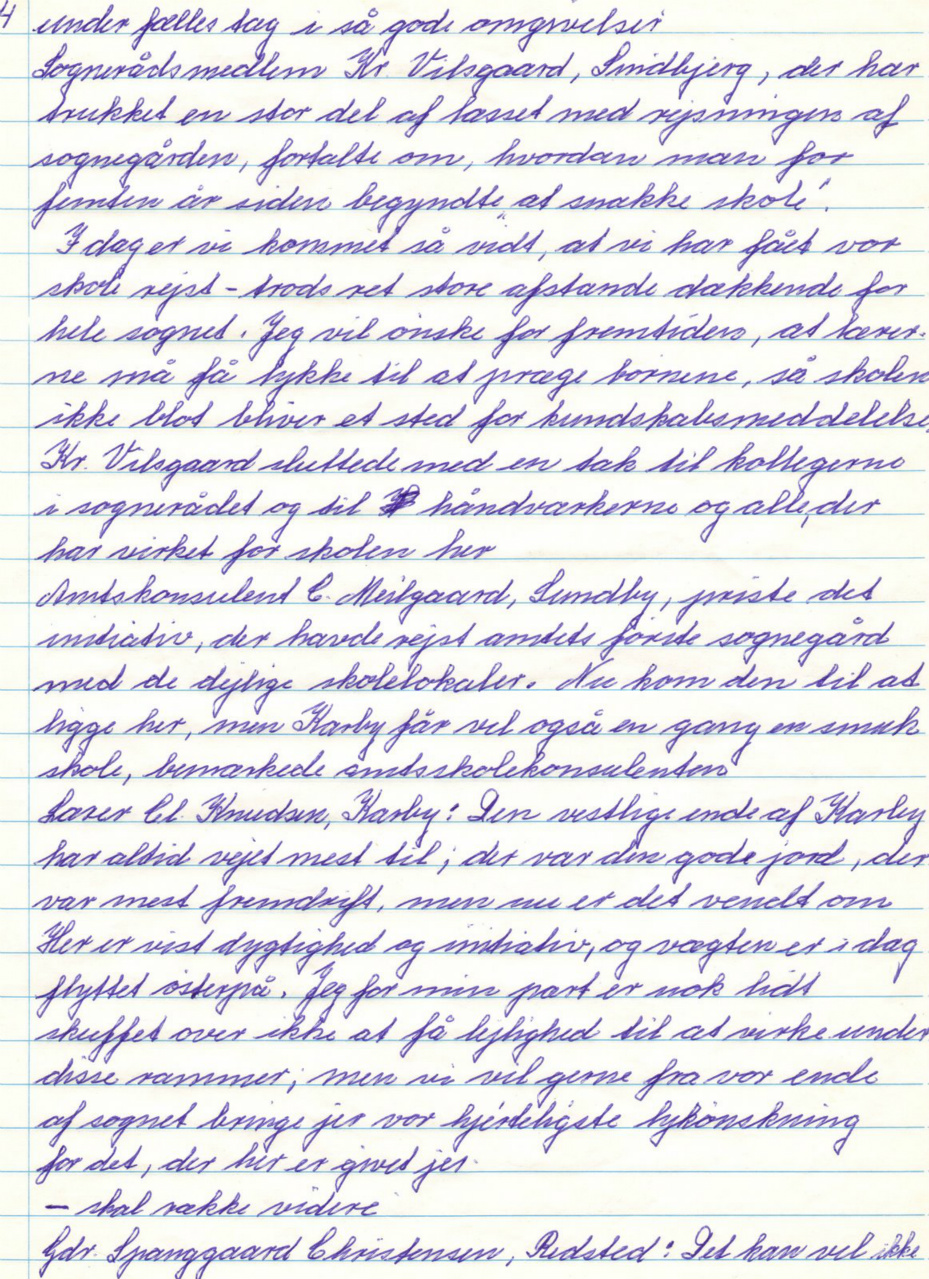 4 under fælles tag i så gode omgivelser
Sognerådsmedlem Kr. Vilsgaard, Smidbjerg, der har
trukket en stor del af læsset med rejsningen af
sognegården, fortalte om, hvordan man for
femten år siden begyndte "at snakke skole".
I dag er vi kommet så vidt, at vi har fået vor
skole rejst - trods ret store afstande dækkende for
hele sognet. Jeg vil ønske for fremtiden, at lærer-
ne må få lykke til at præge børnene, så skolen
ikke blot bliver et sted for kundskabsmeddelelse,
Kr. Vilsgaard sluttede med en tak til kollegerne
i sognerådet og til håndværkerne og alle, der
har virket for skolen her
Amtskonsulent C. Meilgaard, Sundby, priste det
initiativ, der havde rejst amtets første sognegård
med de dejlige skolelokaler. Nu kom den til at
ligge her, men Karby får vel også en gang en smuk
skole, bemærkede amtsskolekonsulenten
Lærer Cl. Knudsen, Karby: Den vestlige ende af Karby
har altid vejet mest til; der var den gode jord, der
var mest fremdrift, men nu er det vendt om
Her er vist dygtighed og initiativ, og vægten er i dag
flyttet østerpå. Jeg for min part er nok lidt
skuffet over ikke at få lejlighed til at virke under
disse rammer; men vi vil gerne fra vor ende
af sognet bringe jer vor hjerteligste lykønskning
for det, der her er givet jer.
— skal række videre
Gdr. Spanggaard Christensen, Redsted: Det kan vel ikke